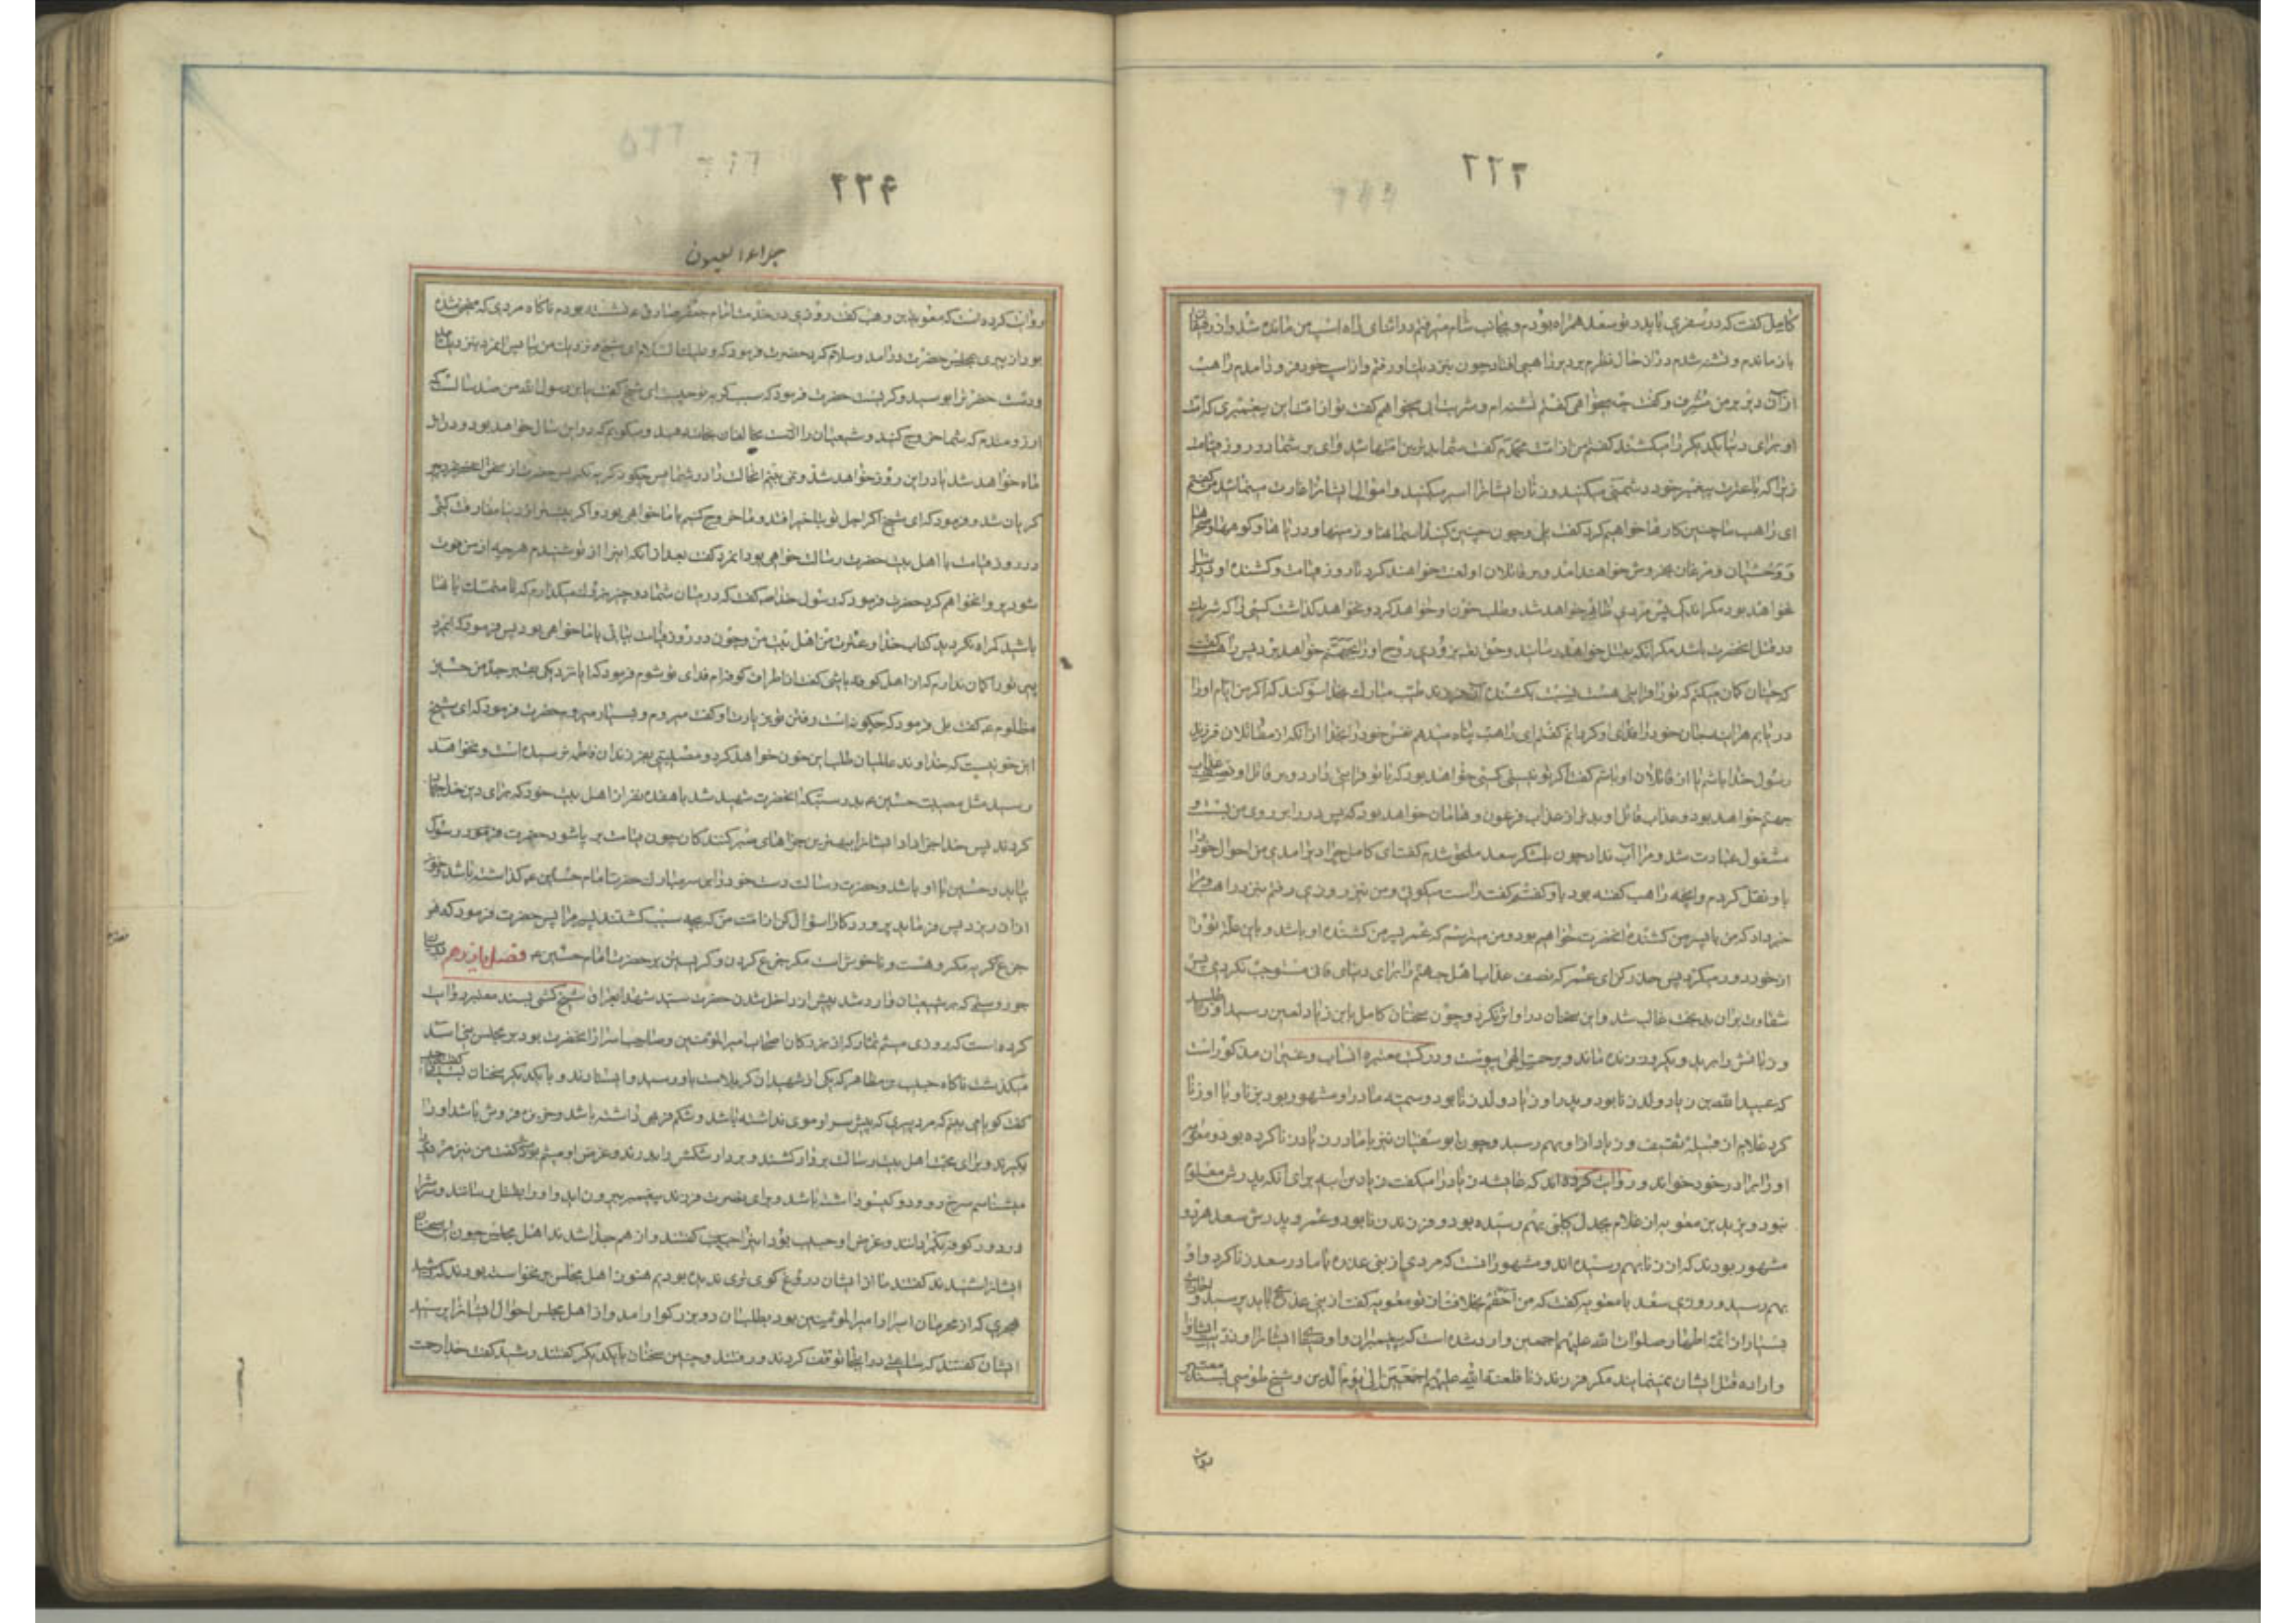 ۲۲۳
کامل گفت که در سفری با پدر تو سعد همراه بودم و بجانب شام میرفتم در اثنای راه اسب من مانده شد و از رفیقان
باز ماندم و تشنه شدم در آن حال نظرم بر دیر راهبی افتاد چون بنزدیک او رفتم و از اسب خود فرود آمدم راهب
از آن دیر بر من مشرف و گفت چه میخواهی گفتم تشنه ام و شربت آبی میخواهم گفت تو از امت این پیغمبری که امت
او برای دنیا یکدیگر را میکشند گفتم من از امت محمدم گفت شما بدترین امتها شد وای بر شما در روز قیامت
زیرا که با عترت پیغمبر خود دشمنی میکنید و زنان ایشانرا اسیر میکنید و اموال ایشانرا غارت مینمائید من گفتم
ای راهب ما چنین کارها خواهیم کرد گفت بلی و چون چنین کنید آسمانها و زمینها و دریاها و کوهها و صحرا
و وحشیان و مرغان بخروش خواهند آمد و بر قاتلان او لعنت خواهند کرد تا روز قیامت و کشنده او در
نخواهد بود مگر اندکی پس مردی ظاهر خواهد شد و طلب خون او خواهد کرد و نخواهد گذاشت کسی را که شریک
در قتل آنحضرت باشد مگر آنکه بقتل خواهد رسانید و حق تعالی بزودی روح او را بجهنم خواهد برد پس راهب گفت
که چنان گمان میکنم که تو را قرابتی هست نسبت بکشنده آن فرزند طیب مبارک بخدا سوگند که اگر من ایام او را
دریابم هرآینه جان خود را فدای او کردانم گفتم ای راهب پناه میدهم نفس خود را بخدا از آنکه از مقاتلان فرزند
رسول خدا باشم یا از قاتلان او باشم گفت اگر تو نیستی کسی خواهد بود که با تو قرابتی دارد و بر قاتل او نصف عذاب
جهنم خواهد بود و عذاب قاتل او بدتر از عذاب فرعون و هامان خواهد بود که پس در را بر روی من بست و
مشغول عبادت شد و مرا آب نداد چون بلشکر سعد ملحق شدم گفت ای کامل چرا دیر آمدی من احوال خود را
باو نقل کردم و آنچه راهب گفته بود باو گفتم گفت راست میگوئی و من نیز روزی رفتم بنزد راهب و مرا
خبر داد که من یا پسر من کشنده آنحضرت خواهیم بود و من میترسم که عمر پسر من کشنده او باشد و باین علة تو را
از خود دور میکرد پس حذر کن ای عمر که نصف عذاب اهل جهنم را برای دنیای فانی مستوجب نگردی پس
شقاوت بر آن بدبخت غالب شد و این سخنان در او اثر نکرد و چون سخنان کامل بابن زیاد لعین رسید او را طلبید
و زبانش را برید و یکروز زنده ماند و برحمت الهی پیوست و در کتب معتبره انساب و غیر آن مذکور است
که عبید الله بن زیاد ولد زنا بود و پدر او زیاد ولد زنا بود و سمیه مادر او مشهور بود بزنا و با او زنا
کرد غلام از قبیله ثقیف و زیاد از او بهم رسید و چون ابو سفیان نیز با مادر زیاد زنا کرده بود و معویه
او را برادر خود خواند و روایت کرده اند که عایشه زیاد را میگفت زیاد بن ابیه برای آنکه پدرش معلوم
نبود و یزید بن معویه از غلام بجدل کلبی بهم رسیده بود و فرزند زنا بود و عمر و پدرش سعد هر دو
مشهور بودند که از زنا بهم رسیده اند و مشهور آنست که مردی از بنی عذره با مادر سعد زنا کرد و او
بهم رسید و روزی سعد با معویه گفت که من احقم بخلافت از تو معویه گفت از بنی عذره باید پرسید و احادیث
بسیار از ائمة اطهار صلوات الله علیهم اجمعین وارد شده است که پیغمبران و اوصیاء ایشانرا و ذریت ایشانرا
و اراده قتل ایشان نمینمایند مگر فرزند زنا فلعنة الله علیهم اجمعین الی یوم الدین و شیخ طوسی بسند معتبر
روایت
۲۲۴
جلاء العیون
روایت کرده است که معویة بن وهب گفت روزی در خدمت امام جعفر صادق ع نشسته بودم ناگاه مردی که منحنی شده
بود از پیری بمجلس حضرت درآمد و سلام کرد حضرت فرمود که و علیک السلام ای شیخ و نزدیک من بیا پس آنمرد بنزدیک
و دست حضرترا بوسید و گریست حضرت فرمود که سبب گریه تو چیست ای شیخ گفت یابن رسول الله من صد سال است که
آرزومندم که شما خروج کنید و شیعیان را از دست مخالفان نجات دهید و میگویم که در این سال خواهد بود و در این
ماه خواهد شد یا در این روز خواهد شد و نمی بینم آنحالت را در شما پس چگونه گریه نکنم پس حضرت از سخن آنمرد پیر
گریان شد و فرمود که ای شیخ اگر اجل تو بتاخیر افتد و ما خروج کنیم با ما خواهی بود و اگر پیشتر از دنیا مفارقت کنی
در روز قیامت با اهل بیت حضرت رسالت خواهی بود آنمرد گفت بعد از آنکه اینرا از تو شنیدم هرچه از من فوت
شود پروا نخواهم کرد حضرت فرمود که رسول خدا ص گفت که در میان شما دو چیز بزرگ میگذارم که تا متمسک بآنها
باشید گمراه نگردید کتاب خدا و عترت من اهل بیت من و چون در روز قیامت بیائی با ما خواهی بود پس فرمود که آنمرد
پیر تو را گمان ندارم که از اهل کوفه باشی گفت از اطراف کوفه ام فدای تو شوم فرمود که آیا نزدیکی بقبر جد من حسین
مظلوم ع گفت بلی فرمود که چگونه است رفتن تو بزیارت او گفت میروم و بسیار میروم حضرت فرمود که ای شیخ
این خونیست که خداوند عالمیان طلب این خون خواهد کرد و مصیبتی بفرزندان فاطمه نرسیده است و نخواهد
رسید مثل مصیبت حسین ع بدرستیکه آنحضرت شهید شد با هفده نفر از اهل بیت خود که برای دین خدا جهاد
کردند پس خدا جزا داد ایشانرا بهترین جزاهای صبر کنندگان چون قیامت بر پا شود حضرت فرمود رسول
بیاید و حسین با او باشد و حضرت رسالت دست خود را بر سر مبارک حضرت امام حسین ع گذاشته باشد و خون
از آن ریزد پس فرماید پروردگارا سؤال کن از امت من که بچه سبب کشتند پسر مرا پس حضرت فرمود که هر
جزع و گریه مکروهست و ناخوش است مگر جزع کردن و گریستن بر حضرت امام حسین ع فصل یازدهم در بیان
جور و ستمی که بر شیعیان وارد شد پیش از داخل شدن حضرت سید شهدا بعراق شیخ کشی بسند معتبر روایت
کرده است که روزی میثم تمار که از بزرگان اصحاب امیر المؤمنین و صاحب اسرار آنحضرت بود بر مجلس بنی اسد
میگذشت ناگاه حبیب بن مظاهر که یکی از شهیدان کربلاست باو رسید و ایستادند و با یکدیگر سخنان بسیار گفتند حبیب
گفت گویا می بینم که مرد پیری که پیش سر او موی نداشته باشد و شکم فربهی داشته باشد و خربزه فروش باشد او را
بگیرند و برای محبت اهل بیت رسالت بر دار کشند و بر دار شکمش را بدرند و غرض او میثم بود میثم گفت من نیز مردی را
میشناسم سرخ رو و دو گیسو داشته باشد و برای نصرت فرزند پیغمبر بیرون آید و او را بقتل رسانند و سرش را
در دور کوفه بگردانند و غرض او حبیب بود اینرا گفتند و از هم جدا شدند اهل مجلس چون این سخنان
ایشانرا شنیدند گفتند ما از ایشان دروغ گوی تری ندیده بودیم هنوز اهل مجلس برنخواسته بودند که رشید
هجری که از محرمان اسرار امیر المؤمنین بود بطلب آن دو بزرگوار آمد و از اهل مجلس احوال ایشانرا پرسید
ایشان گفتند که ساعتی در اینجا توقف کردند و رفتند و چنین سخنان با یکدیگر گفتند رشید گفت خدا رحمت